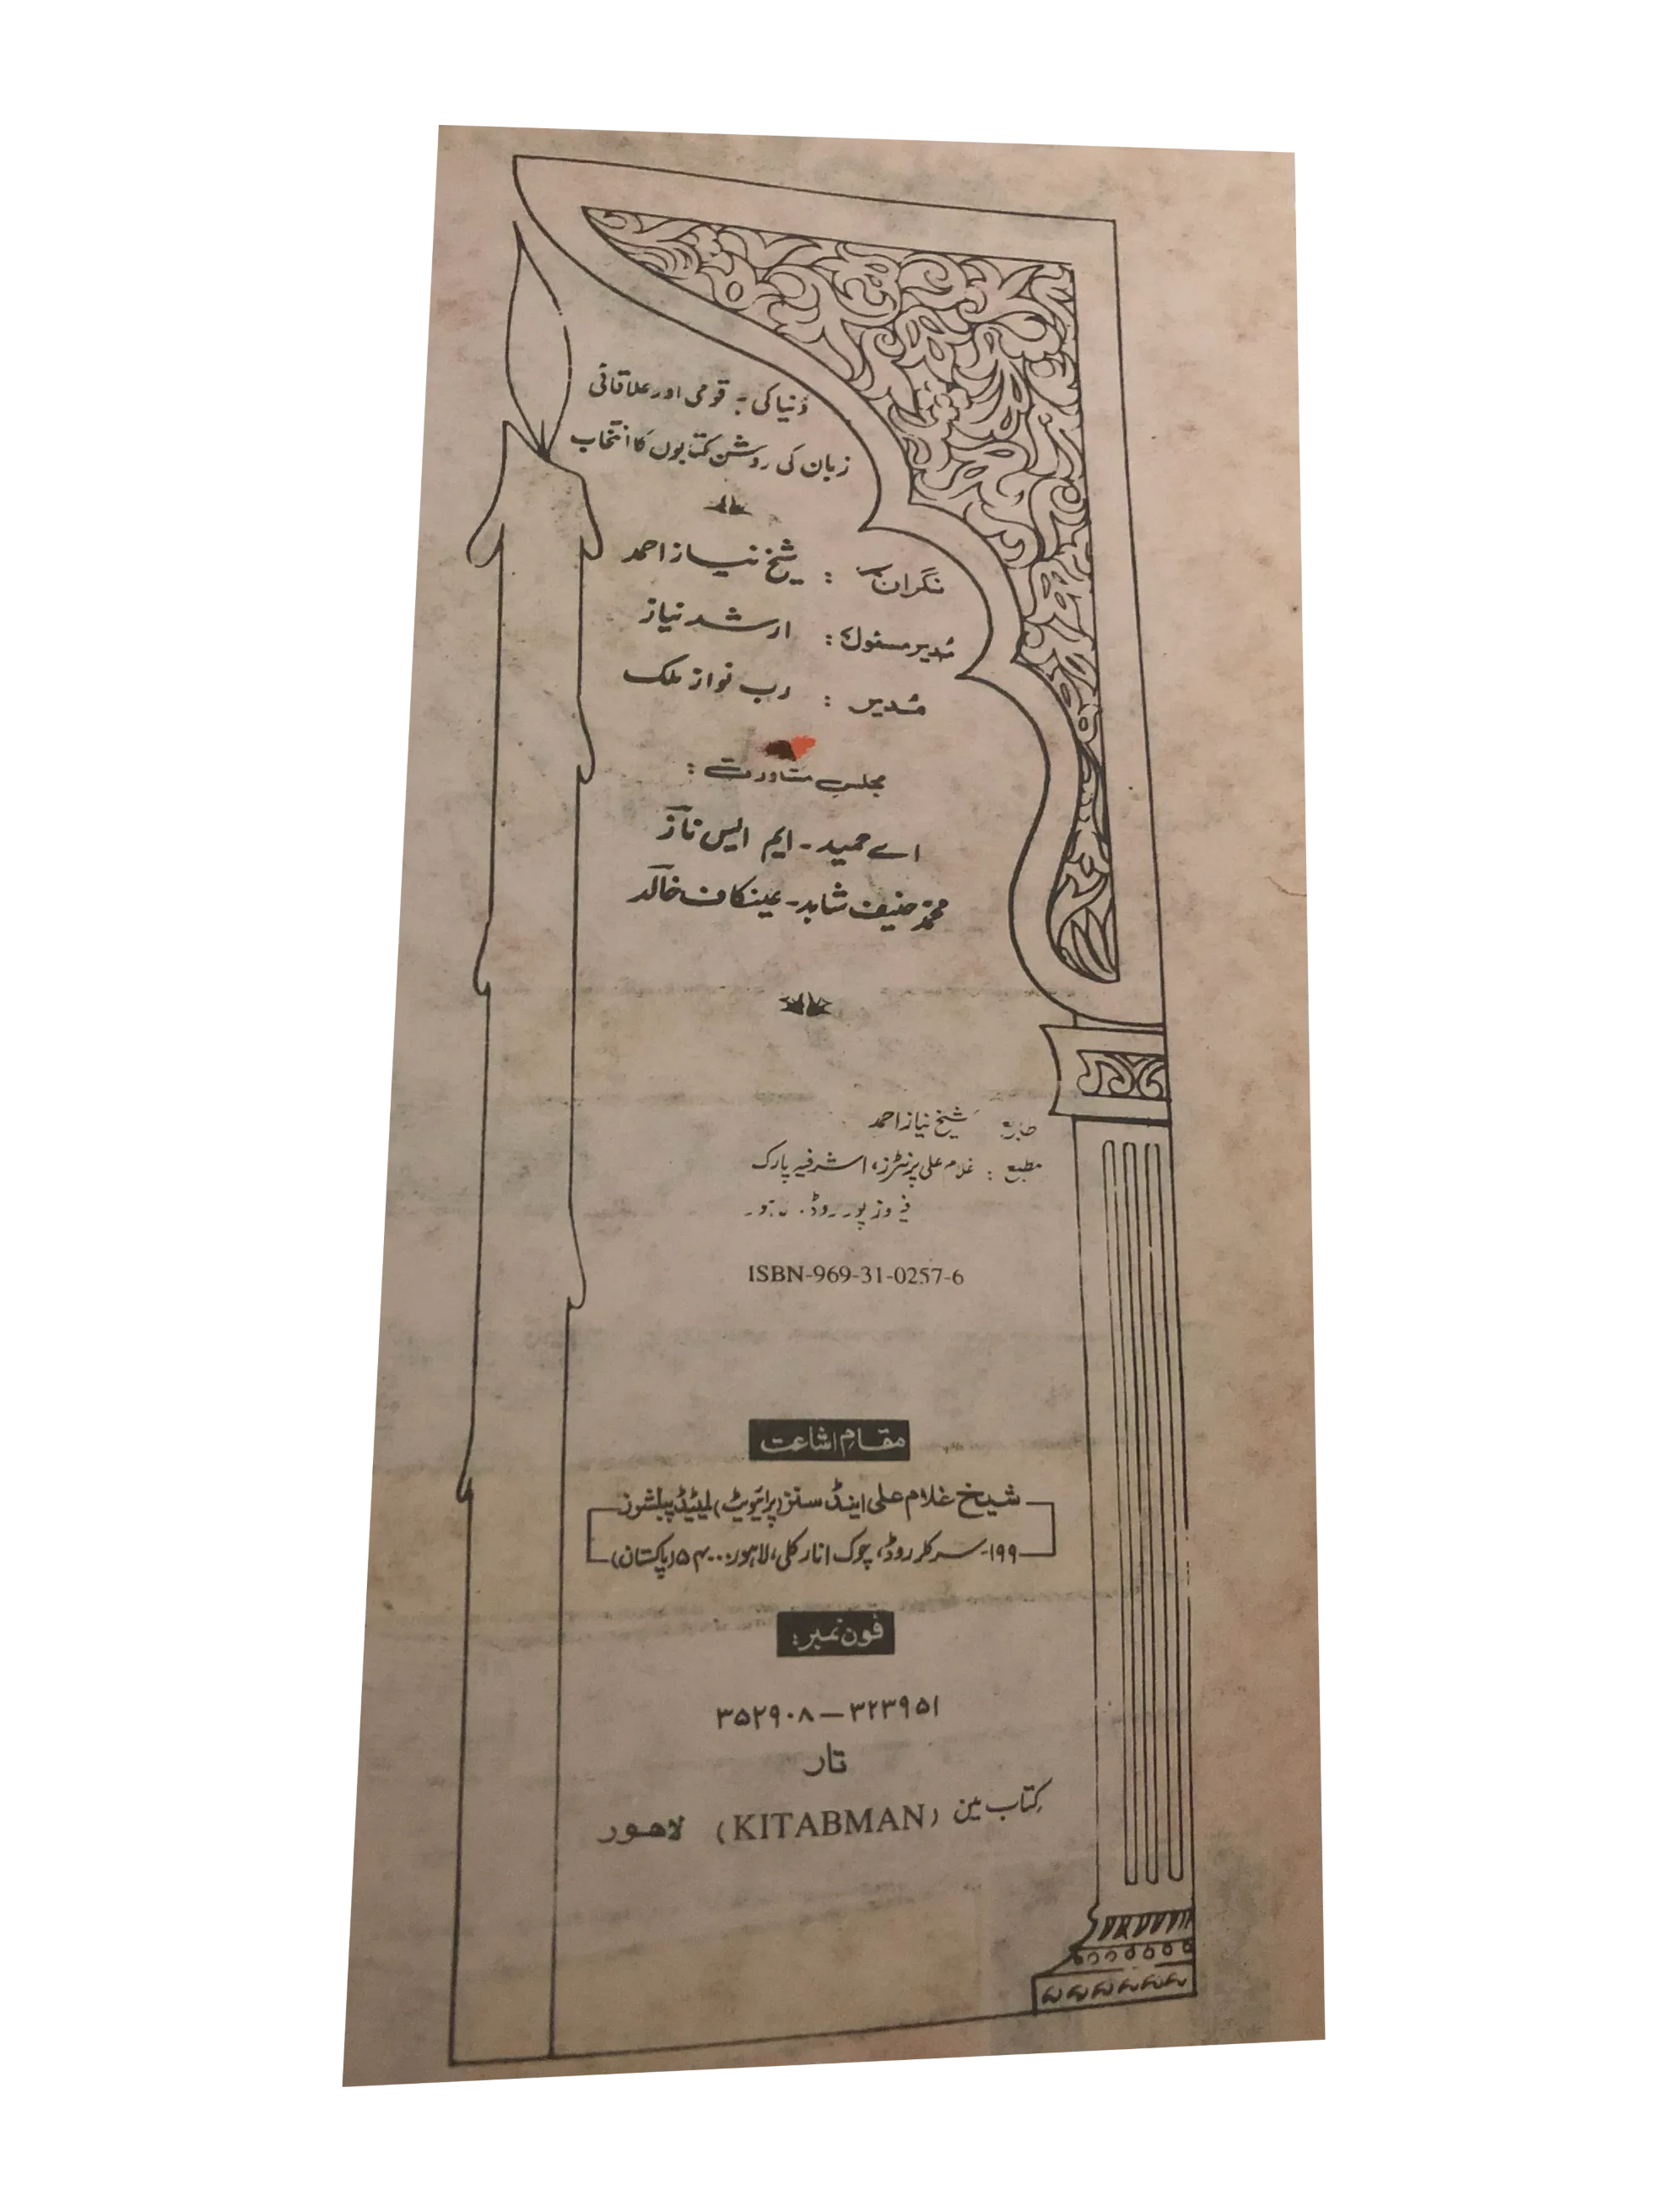 دُنیا کی ہر قومی اور علاقائی
زبان کی روشن کتابوں کا انتخاب
نگران : شیخ نیاز احمد
مُدیر مسئول : ارشد نیاز
مُدیر : رب نواز ملک
مجلسِ مشاورت :
اے حمید - ایم ایس ناز
محمد حنیف شاہد - عین کاف خالد
طابع شیخ نیاز احمد
مطبع : غلام علی پرنٹرز، اشرفیہ پارک
فیروز پور روڈ، لاہور
ISBN-969-31-0257-6
مقامِ اشاعت
شیخ غلام علی اینڈ سنز (پرائیویٹ) لمیٹڈ پبلشرز
۱۹۹- سرکلر روڈ، چوک انار کلی، لاہور ۵۴۰۰۰ (پاکستان)
فون نمبر :
۳۵۲۹۰۸ — ۳۲۳۹۵۱
تار
کتاب مین (KITABMAN) لاہور